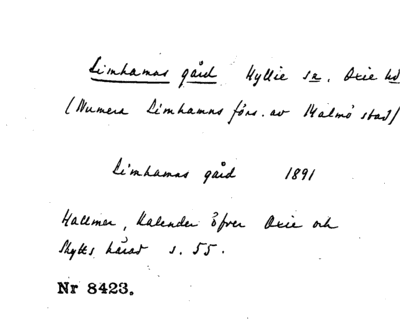 Limhamns gård Hyllie sn. Oxie hd
(Numera Limhamns förs. av Malmö stad)
Limhamns gård 1891
Hallmer, Kalender öfver Oxie och
Skytts härad s. 55.
Nr 8423.